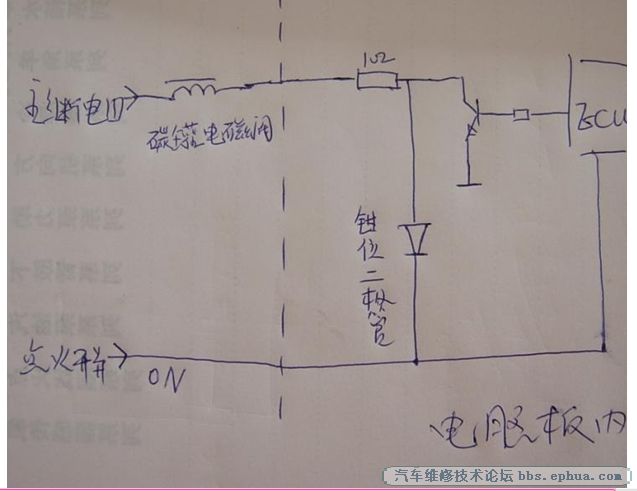 1Ω
主继电四
碳罐电磁阀
ECU
钳位二极管
点火开关
ON
电脑板内
汽车维修技术论坛 bbs.ephua.com